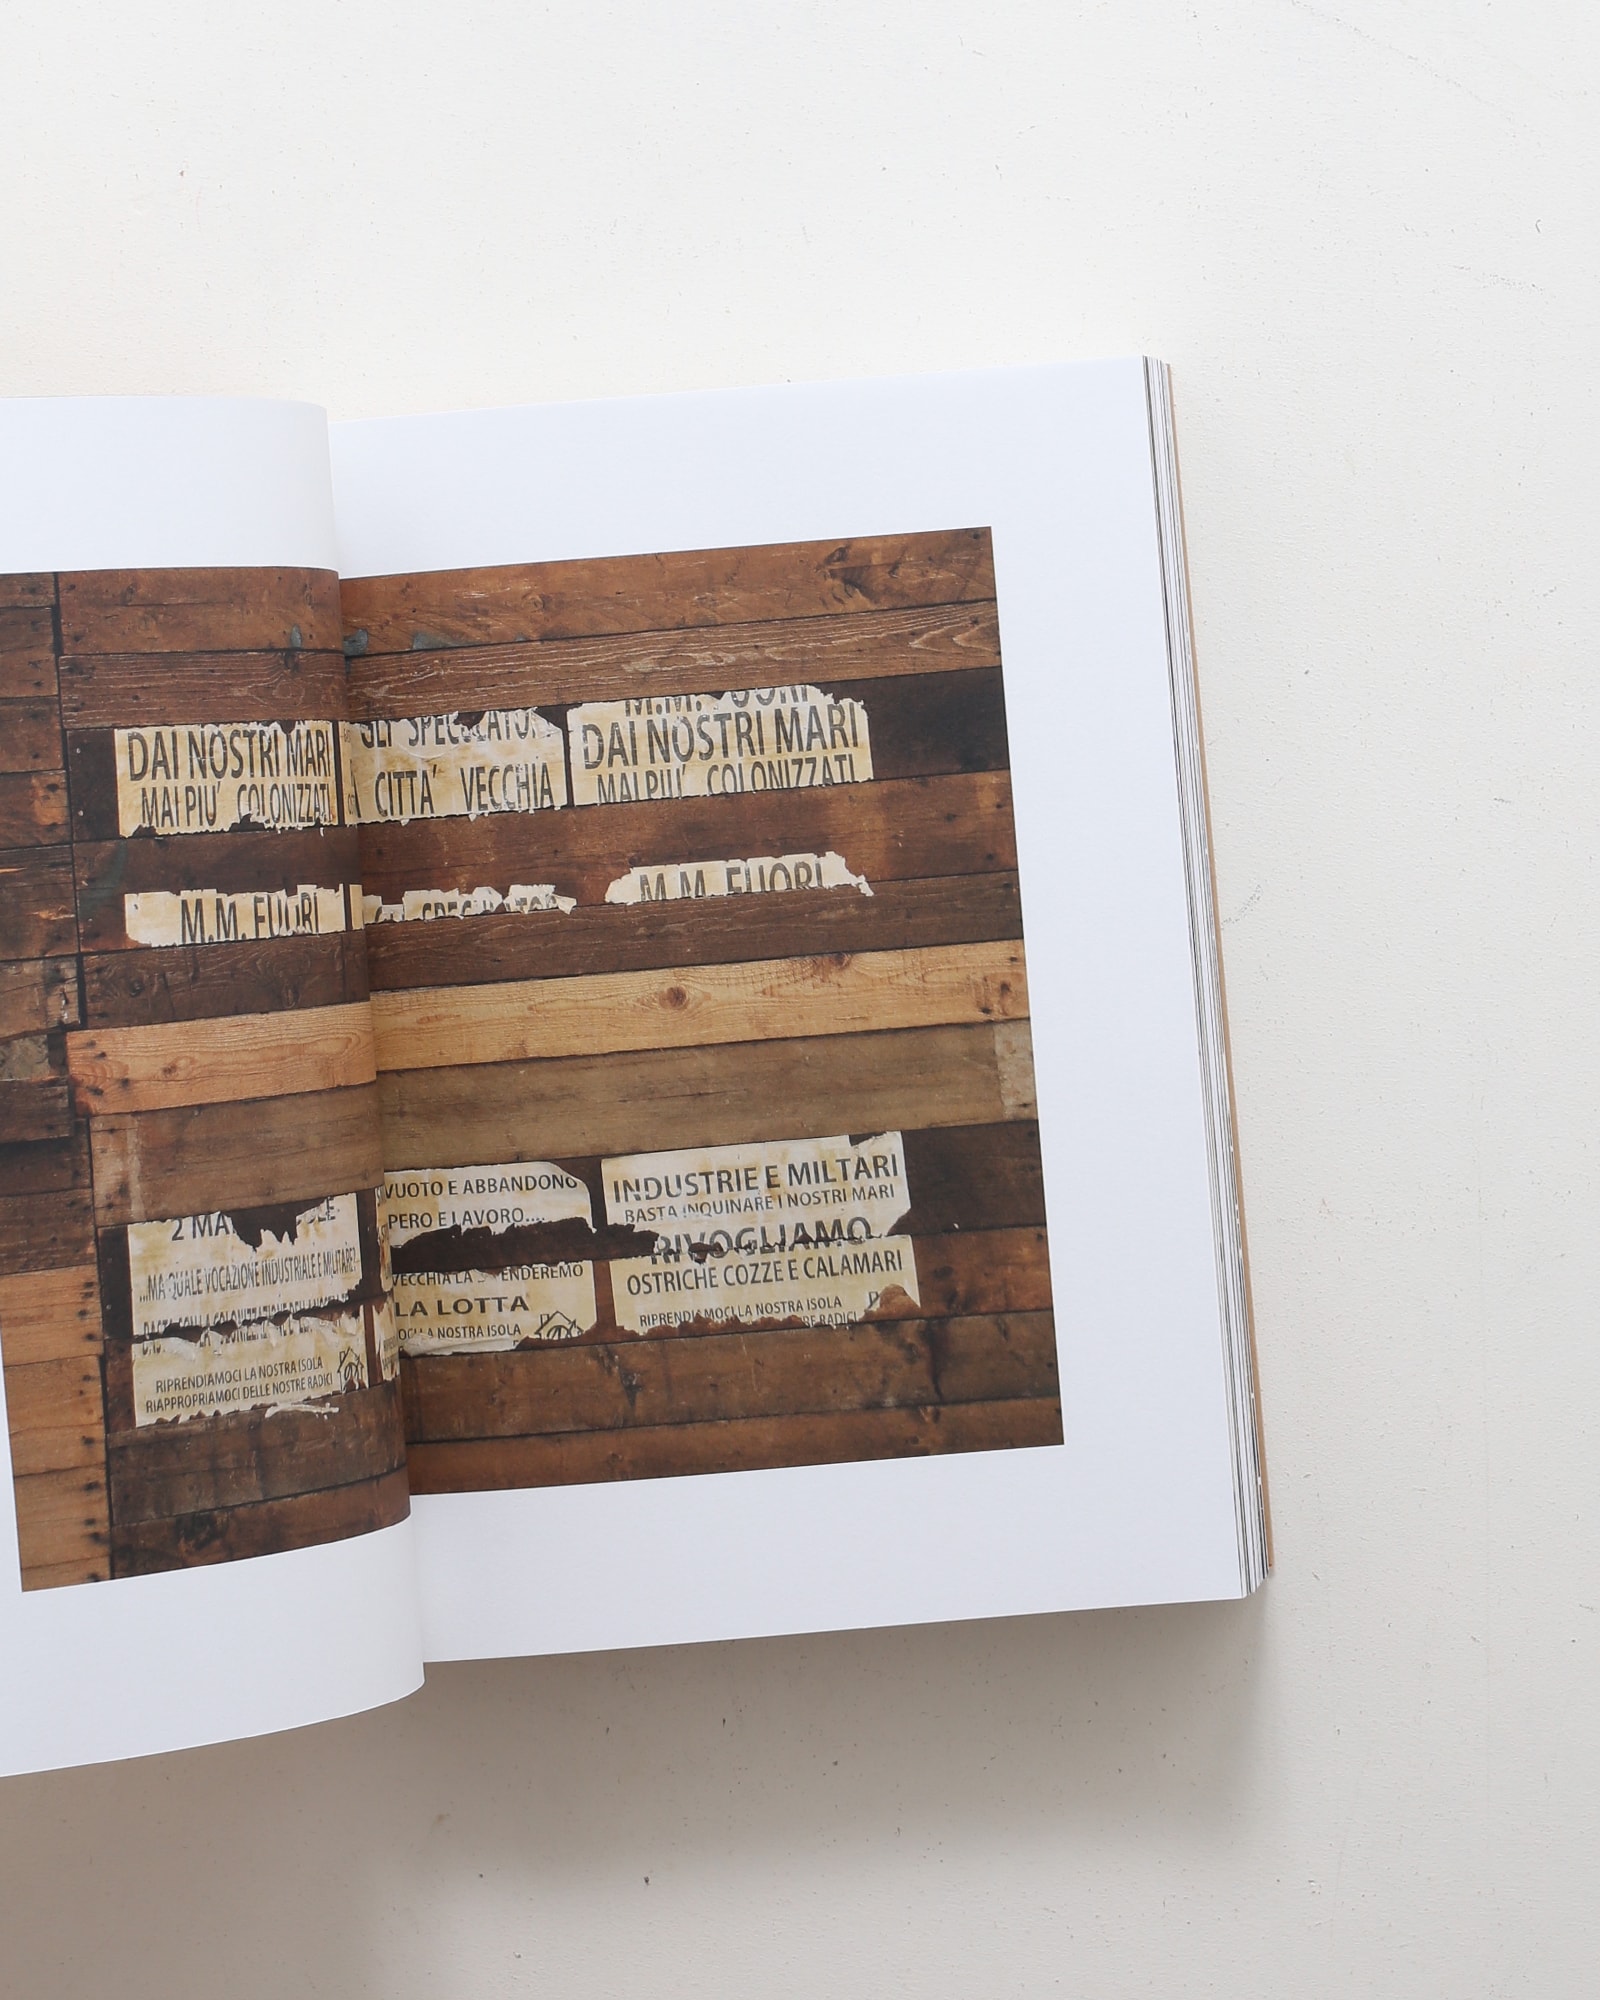 DAI NOSTRI MARI
MAI PIU' COLONIZZATI
GLI SPECULATORI
CITTA' VECCHIA
M.M. FUORI
DAI NOSTRI MARI
MAI PIU' COLONIZZATI
M.M. FUORI
GLI SPECULATORI
M.M. FUORI
2 MA
...MA QUALE VOCAZIONE INDUSTRIALE E MILITARE?
RIPRENDIAMOCI LA NOSTRA ISOLA
RIAPPROPRIAMOCI DELLE NOSTRE RADICI
VUOTO E ABBANDONO
PERO E LAVORO....
VECCHIA LA ENDEREMO
LA LOTTA
LA NOSTRA ISOLA
INDUSTRIE E MILTARI
BASTA INQUINARE I NOSTRI MARI
RIVOGLIAMO
OSTRICHE COZZE E CALAMARI
RIPRENDIAMOCI LA NOSTRA ISOLA
RE RADICI